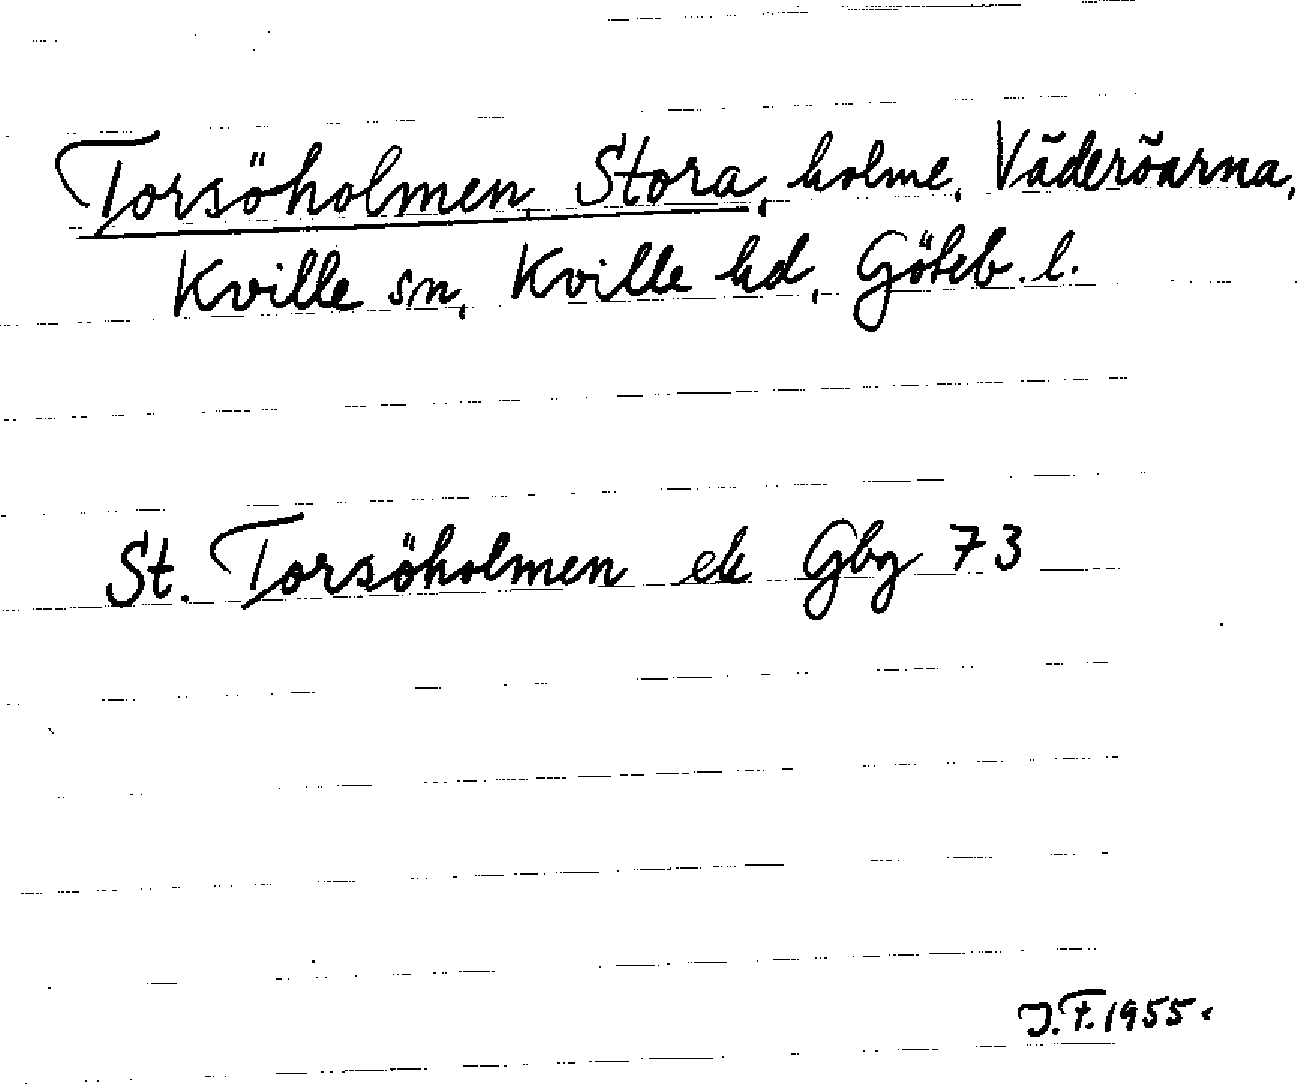 Torsöholmen, Stora, holme, Väderöarna,
Kville sn, Kville hd, Göteb. l.
St. Torsöholmen ek Gbg 73
J.F. 1955.